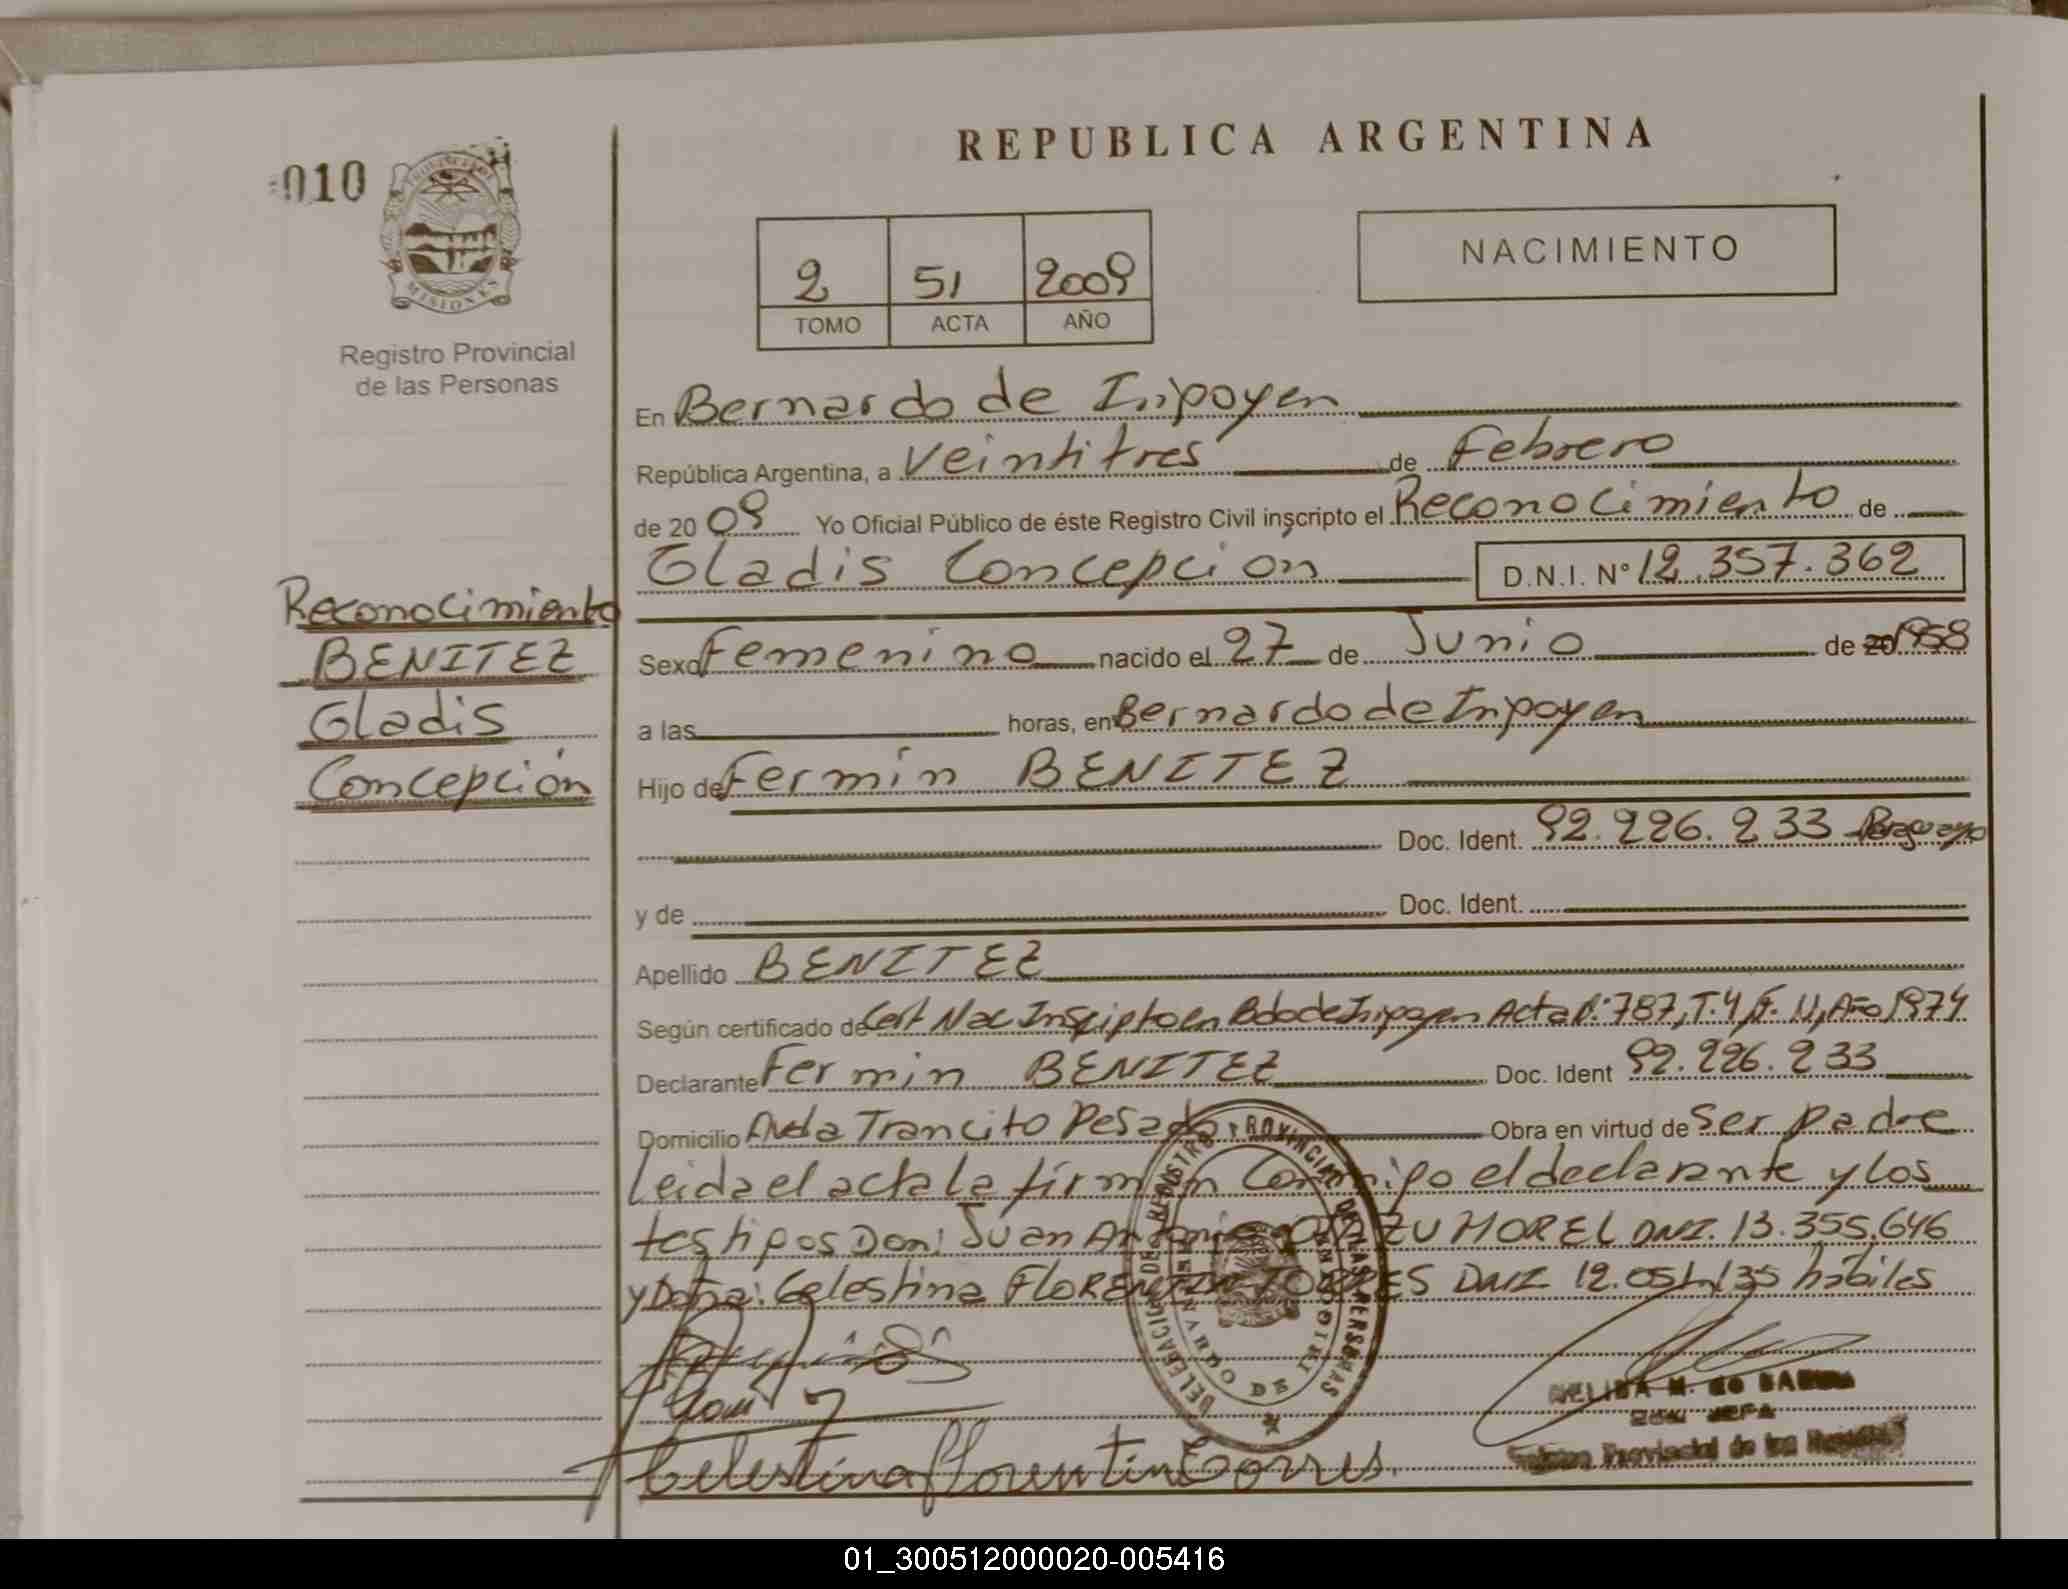 REPUBLICA ARGENTINA
010
MISIONES
Registro Provincial
de las Personas
2 51 2009
TOMO ACTA AÑO
NACIMIENTO
En Bernardo de Irigoyen
República Argentina, a Veintitres de Febrero
de 2009 Yo Oficial Público de éste Registro Civil inscripto el Reconocimiento de
Gladis Concepcion D.N.I. N° 12.357.362
Reconocimiento
BENITEZ
Gladis
Concepción
Sexo Femenino nacido el 27 de Junio de 20 1958
a las horas, en Bernardo de Irigoyen
Hijo de Fermin BENITEZ
Doc. Ident. 92.226.233 Paraguayo
y de Doc. Ident.
Apellido BENITEZ
Según certificado de Cert Nac Inscripto en Bdo de Irigoyen Acta N° 787, T. 4, F. 11, Año 1974
Declarante Fermin BENITEZ Doc. Ident 92.226.233
Domicilio Avda Trancito Pesado Obra en virtud de Ser padre
Leida el acta la firman Conmigo el declarante y los
testigos Don: Juan Antonio MOREL DNI. 13.355.646
y Doña: Celestina FLORENTIN TORRES DNI 12.051.135 hábiles
DELEGACION DE REGISTRO PROVINCIAL DE LAS PERSONAS
BERNARDO DE IRIGOYEN
Celestina Florentin Torres
JEFA
Provincial de las
01_300512000020-005416